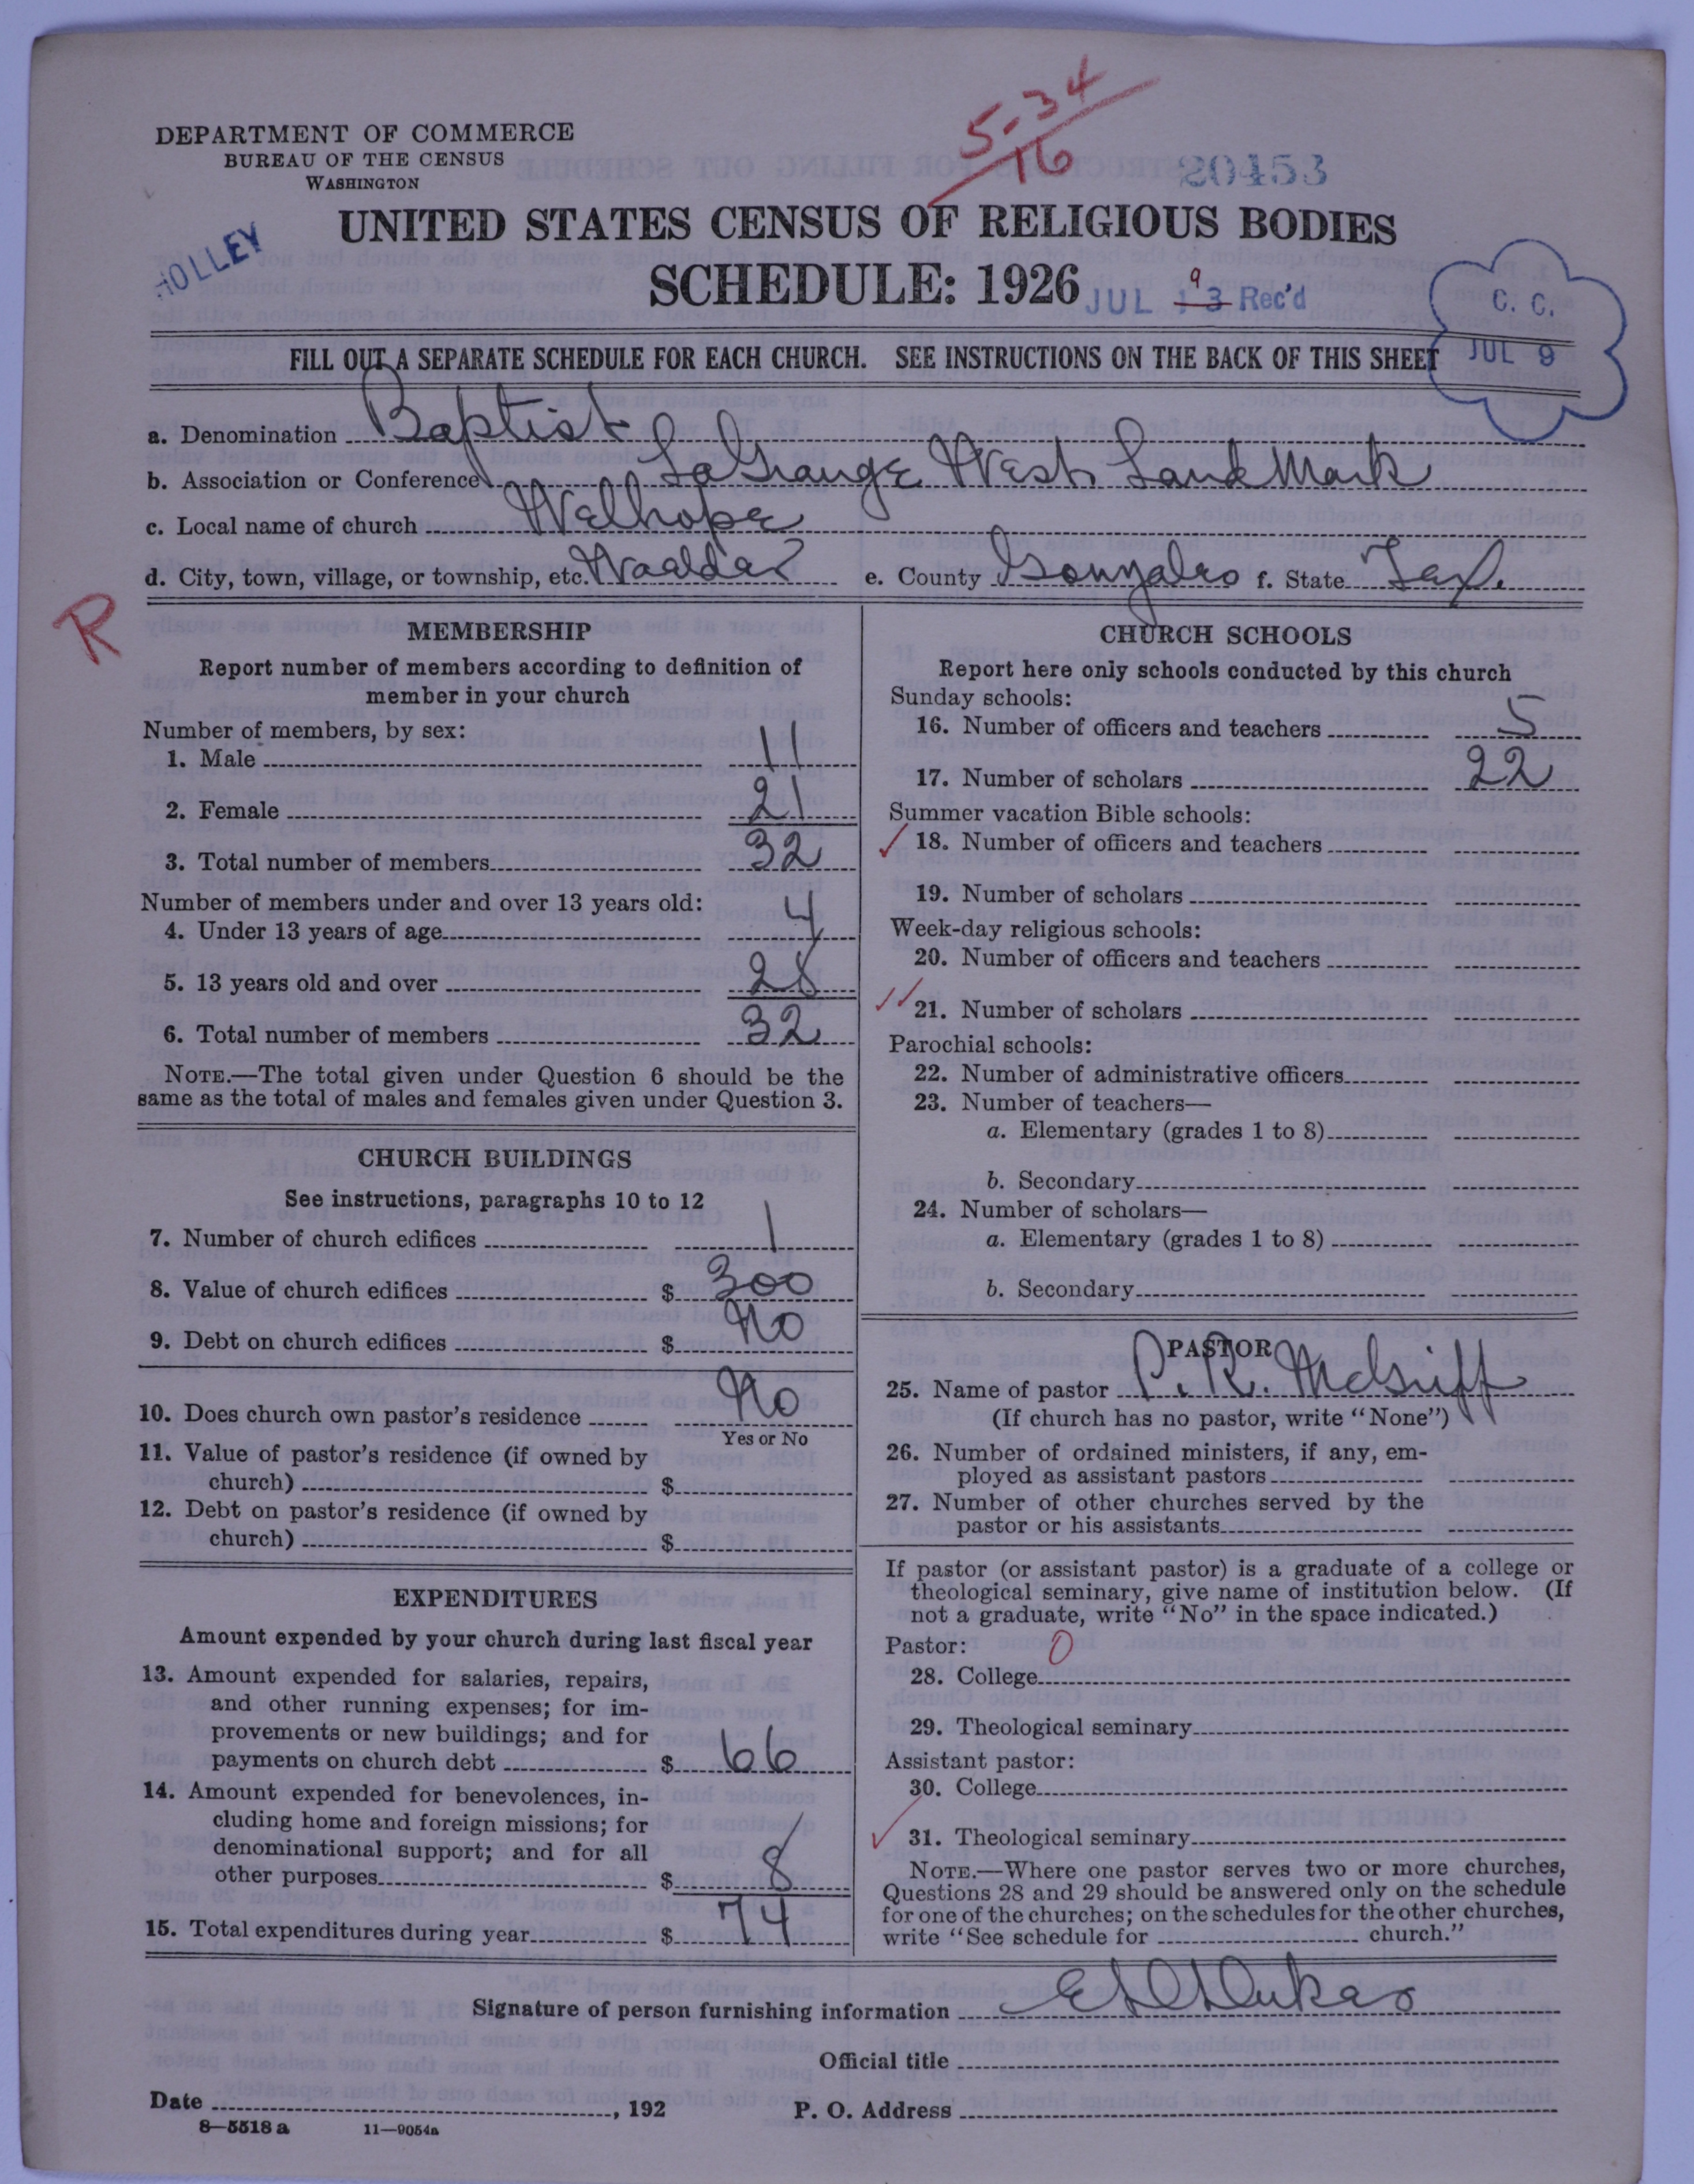 DEPARTMENT OF COMMERCE
BUREAU OF THE CENSUS
WASHINGTON
5-34
16
20453
HOLLEY
UNITED STATES CENSUS OF RELIGIOUS BODIES
SCHEDULE: 1926
JUL 13 Rec'd
9
C. C.
JUL 9
FILL OUT A SEPARATE SCHEDULE FOR EACH CHURCH. SEE INSTRUCTIONS ON THE BACK OF THIS SHEET
a. Denomination Baptist
b. Association or Conference LaGrange West Land Mark
c. Local name of church Welhope
d. City, town, village, or township, etc. Waelder e. County Gonzales f. State Tex.
R
MEMBERSHIP
Report number of members according to definition of
member in your church
Number of members, by sex:
1. Male 11
2. Female 21
3. Total number of members 32
Number of members under and over 13 years old:
4. Under 13 years of age 4
5. 13 years old and over 28
6. Total number of members 32
NOTE.—The total given under Question 6 should be the
same as the total of males and females given under Question 3.
CHURCH BUILDINGS
See instructions, paragraphs 10 to 12
7. Number of church edifices 1
8. Value of church edifices $ 300
9. Debt on church edifices $ No
10. Does church own pastor's residence No
Yes or No
11. Value of pastor's residence (if owned by
church) $
12. Debt on pastor's residence (if owned by
church) $
EXPENDITURES
Amount expended by your church during last fiscal year
13. Amount expended for salaries, repairs,
and other running expenses; for im-
provements or new buildings; and for
payments on church debt $ 66
14. Amount expended for benevolences, in-
cluding home and foreign missions; for
denominational support; and for all
other purposes $ 8
15. Total expenditures during year $ 74
CHURCH SCHOOLS
Report here only schools conducted by this church
Sunday schools:
16. Number of officers and teachers 5
17. Number of scholars 22
Summer vacation Bible schools:
18. Number of officers and teachers
19. Number of scholars
Week-day religious schools:
20. Number of officers and teachers
21. Number of scholars
Parochial schools:
22. Number of administrative officers
23. Number of teachers—
a. Elementary (grades 1 to 8)
b. Secondary
24. Number of scholars—
a. Elementary (grades 1 to 8)
b. Secondary
PASTOR
25. Name of pastor P. R. McGriff
(If church has no pastor, write "None")
26. Number of ordained ministers, if any, em-
ployed as assistant pastors
27. Number of other churches served by the
pastor or his assistants
If pastor (or assistant pastor) is a graduate of a college or
theological seminary, give name of institution below. (If
not a graduate, write "No" in the space indicated.)
Pastor: 0
28. College
29. Theological seminary
Assistant pastor:
30. College
31. Theological seminary
NOTE.—Where one pastor serves two or more churches,
Questions 28 and 29 should be answered only on the schedule
for one of the churches; on the schedules for the other churches,
write "See schedule for church."
Signature of person furnishing information
Official title
Date , 192 P. O. Address
8—5518 a 11—9054a